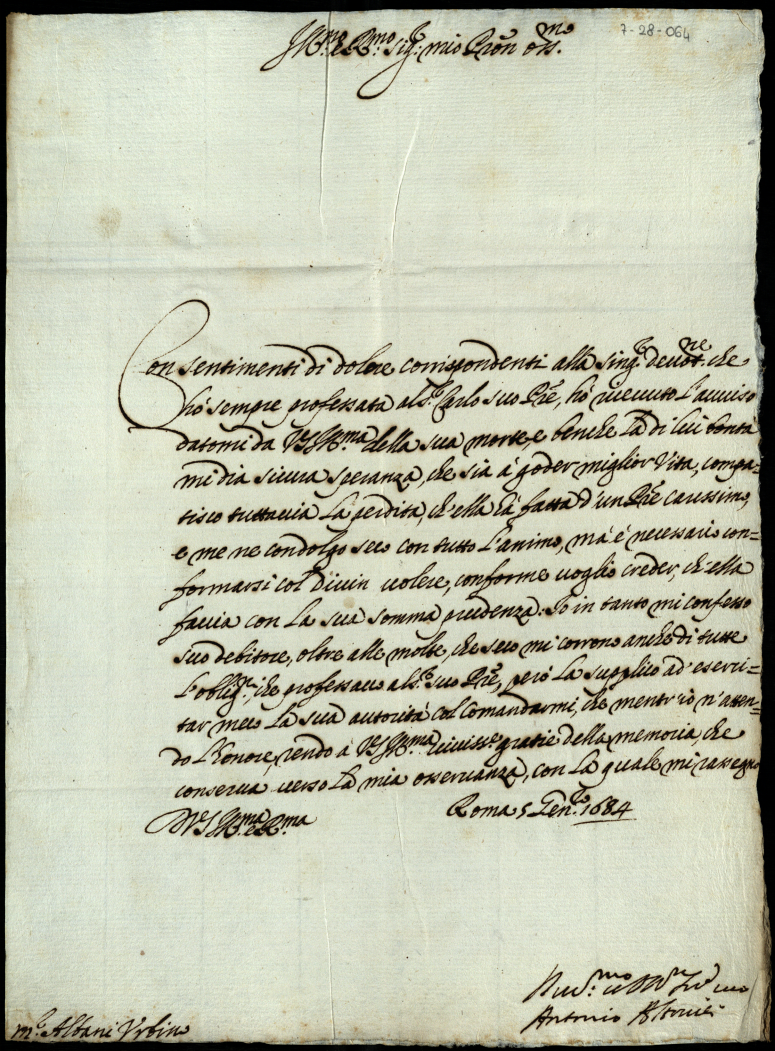 7-28-064
Ill.mo e R.mo Sig.r mio Pron oss.mo
Con sentimenti di dolore corrispondenti alla sing.r devot.ne che
hò sempre professata al S.r Carlo suo Pre, hò riceuuto l'auuiso
datomi da V.S. Ill.ma della sua morte, e benche la di lui bontà
mi dia sicura speranza, che sia à goder miglior vita, compa-
tisco tuttauia la perdita, ch'ella hà fatta d'un Pre carissimo,
e me ne condolgo seco con tutto l'animo, mà è necessario con=
formarsi col Diuin uolere, conforme uoglio creder, ch'ella
faccia con la sua somma prudenza. Io in tanto mi confesso
suo debitore, oltre alle molte, che seco mi corrono anche di tutte
l'oblig.ni, che professauo al S.r suo Pre, però la supplico ad' eserci=
tar meco la sua autorità col comandarmi, che mentr'io n'atten=
do l'honore, rendo à V.S. Ill.ma uiuiss.e gratie della memoria che
conserua uerso la mia osseruanza, con la quale mi rassegno
D V.S. Ill.ma e R.ma
Roma 5 Gen.ro 1684
Antonio
m.r Albani Vrbino